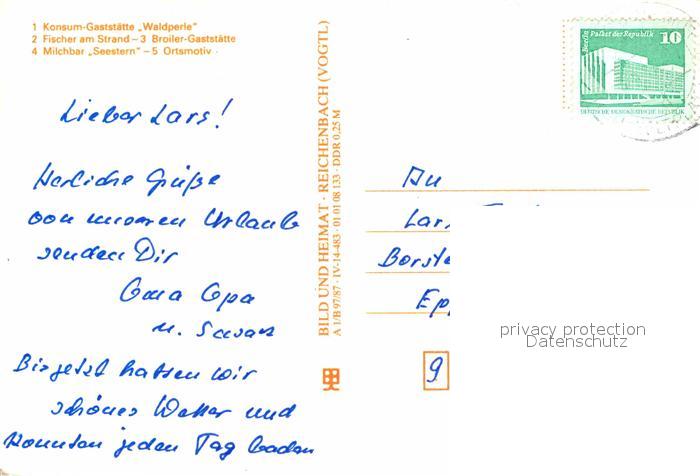 1 Konsum-Gaststätte „Waldperle"
2 Fischer am Strand – 3 Broiler-Gaststätte
4 Milchbar „Seestern" – 5 Ortsmotiv
Lieber Lars!
Herliche Grüße
von unseren Urlaub
senden Dir
Oma Opa
u.
Bis jetzt hatten wir
schönes Wetter und
konnten jeden Tag baden
BILD UND HEIMAT · REICHENBACH (VOGTL)
A 1/B 97/87 · IV-14-483 · 01 01 08 133 · DDR 0,25 M
Berlin Palast der Republik
10
DEUTSCHE DEMOKRATISCHE REPUBLIK
An
Lars
Borste
Epp
9
privacy protection
Datenschutz